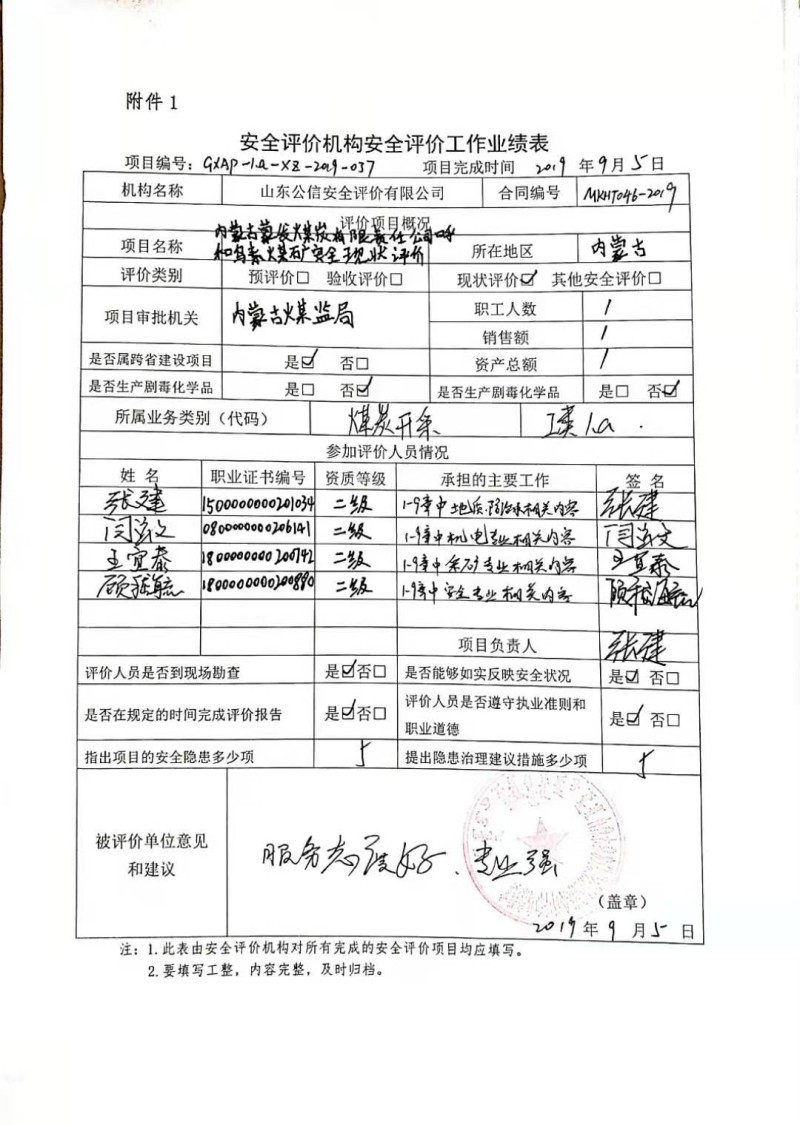 附件1
安全评价机构安全评价工作业绩表
项目编号：GXAP-1.a-XZ-2019-037 项目完成时间 2019 年 9 月 5 日
机构名称 山东公信安全评价有限公司 合同编号 MKHT046-2019
评价项目概况
项目名称 内蒙古蒙 煤炭有限责任公司呼
和乌素煤矿安全现状评价 所在地区 内蒙古
评价类别 预评价□ 验收评价□ 现状评价☑ 其他安全评价□
项目审批机关 内蒙古煤监局 职工人数 /
销售额 /
是否属跨省建设项目 是☑ 否□ 资产总额 /
是否生产剧毒化学品 是□ 否☑ 是否生产剧毒化学品 是□ 否☑
所属业务类别（代码） 煤炭开采 1.a
参加评价人员情况
姓 名 职业证书编号 资质等级 承担的主要工作 签 名
张建 1500000000201034 二级 1-9章中地质、防治水相关内容 张建
闫 文 0800000000206141 二级 1-9章中机电专业相关内容 闫 文
王宜泰 1800000000200742 二级 1-9章中采矿专业相关内容 王宜泰
顾 毓 1800000000200880 二级 1-9章中安全专业相关内容 顾
项目负责人 张建
评价人员是否到现场勘查 是☑否□ 是否能够如实反映安全状况 是☑ 否□
是否在规定的时间完成评价报告 是☑否□ 评价人员是否遵守执业准则和
职业道德 是☑ 否□
指出项目的安全隐患多少项 5 提出隐患治理建议措施多少项 5
被评价单位意见
和建议
服务态度好、专业强
（盖章）
2019 年 9 月 5 日
注：1.此表由安全评价机构对所有完成的安全评价项目均应填写。
2.要填写工整，内容完整，及时归档。